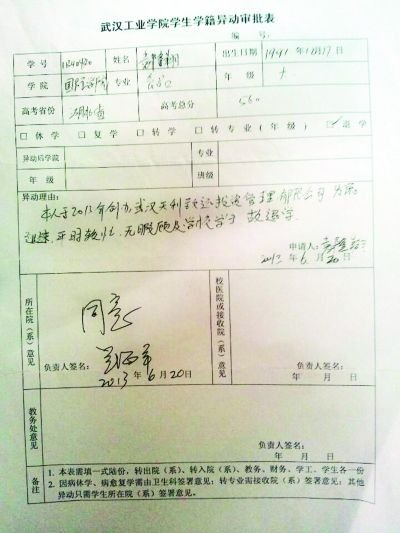 武汉工业学院学生学籍异动审批表
编 号:
学 号 姓名 出生日期 1991年12月17日
学 院 专业 年 级
高考省份 湖北省 高考总分 560
□休 学 □复 学 □转 学 □转 专 业 ( 年 级 ) ☑退 学
异动后学院 专业
年 级 班级
异动理由:
本人于2013年创办武汉天利 投资管理有限公司 为
平时较忙,无暇顾及学校学习 故退学.
申请人:
2013年6月20日
所在院(系)意见
同意
负责人签名:
2013年6月20日
校医院或接收院(系)意见
负责人签名:
年 月 日
教务处意见
负责人签名:
年 月 日
备注
1. 本表需填一式陆份,转出院(系)、转入院(系)、教务、财务、学工、学生各一份
2. 因病休学、病愈复学需由卫生科签署意见;转专业需接收院(系)签署意见;其他
异动只需学生所在院(系)签署意见。